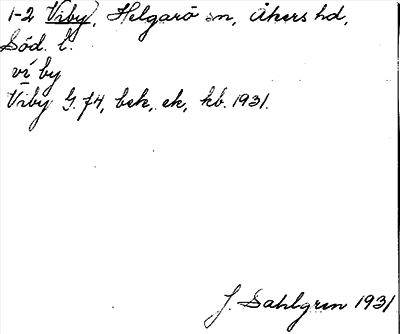 1-2 Viby, Helgarö sn, Åkers hd,
Söd. l.
vi by
Viby G. f4, bek, ek, kb. 1931.
J. Sahlgren 1931